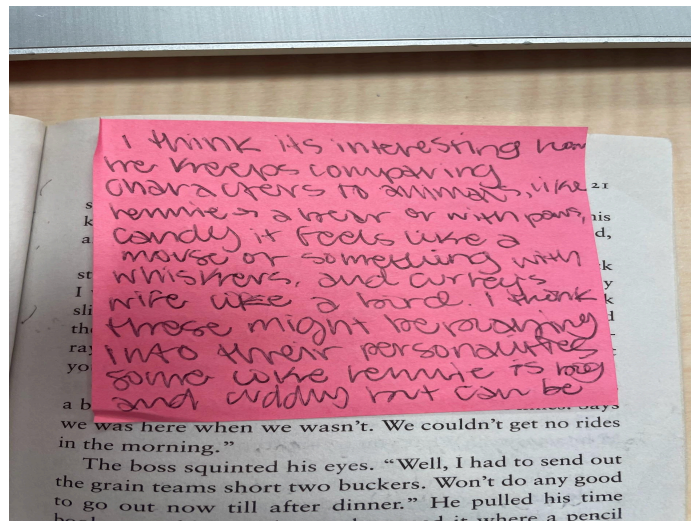 I think its interesting how
he kreeps comparing
characters to animals, like
lennie → a bear or with paws,
candy it feels like a
mouse or something with
whiskers, and curley's
wife like a bird. I think
these might be playing
into their personalities
some like lennie is big
and cuddly but can be
21
his
d,
k
y
k
d
s
k
a
st
I
sli
the
ray
yo
a b says
we was here when we wasn't. We couldn't get no rides
in the morning."
The boss squinted his eyes. "Well, I had to send out
the grain teams short two buckers. Won't do any good
to go out now till after dinner." He pulled his time
where a pencil